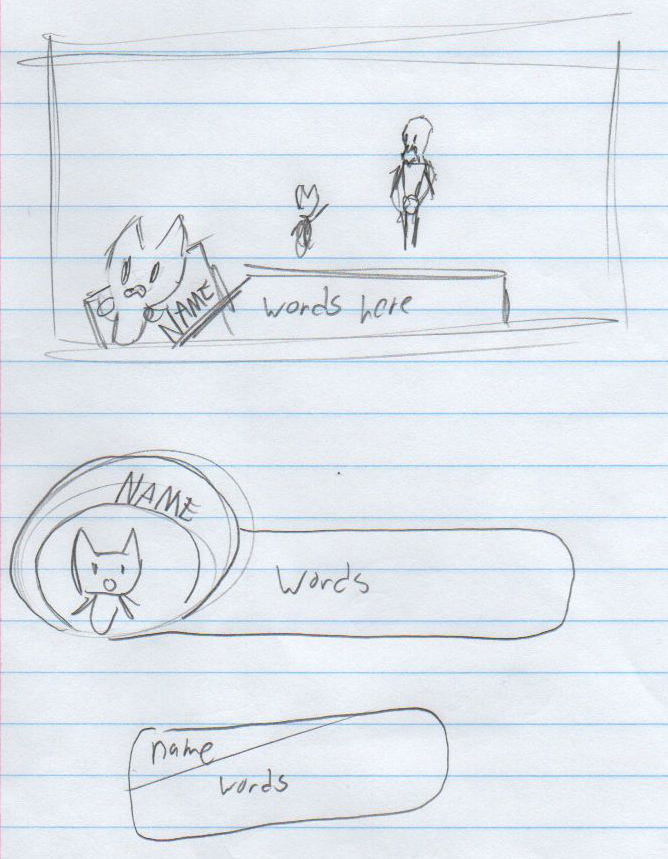 NAME
words here
NAME
Words
name
words